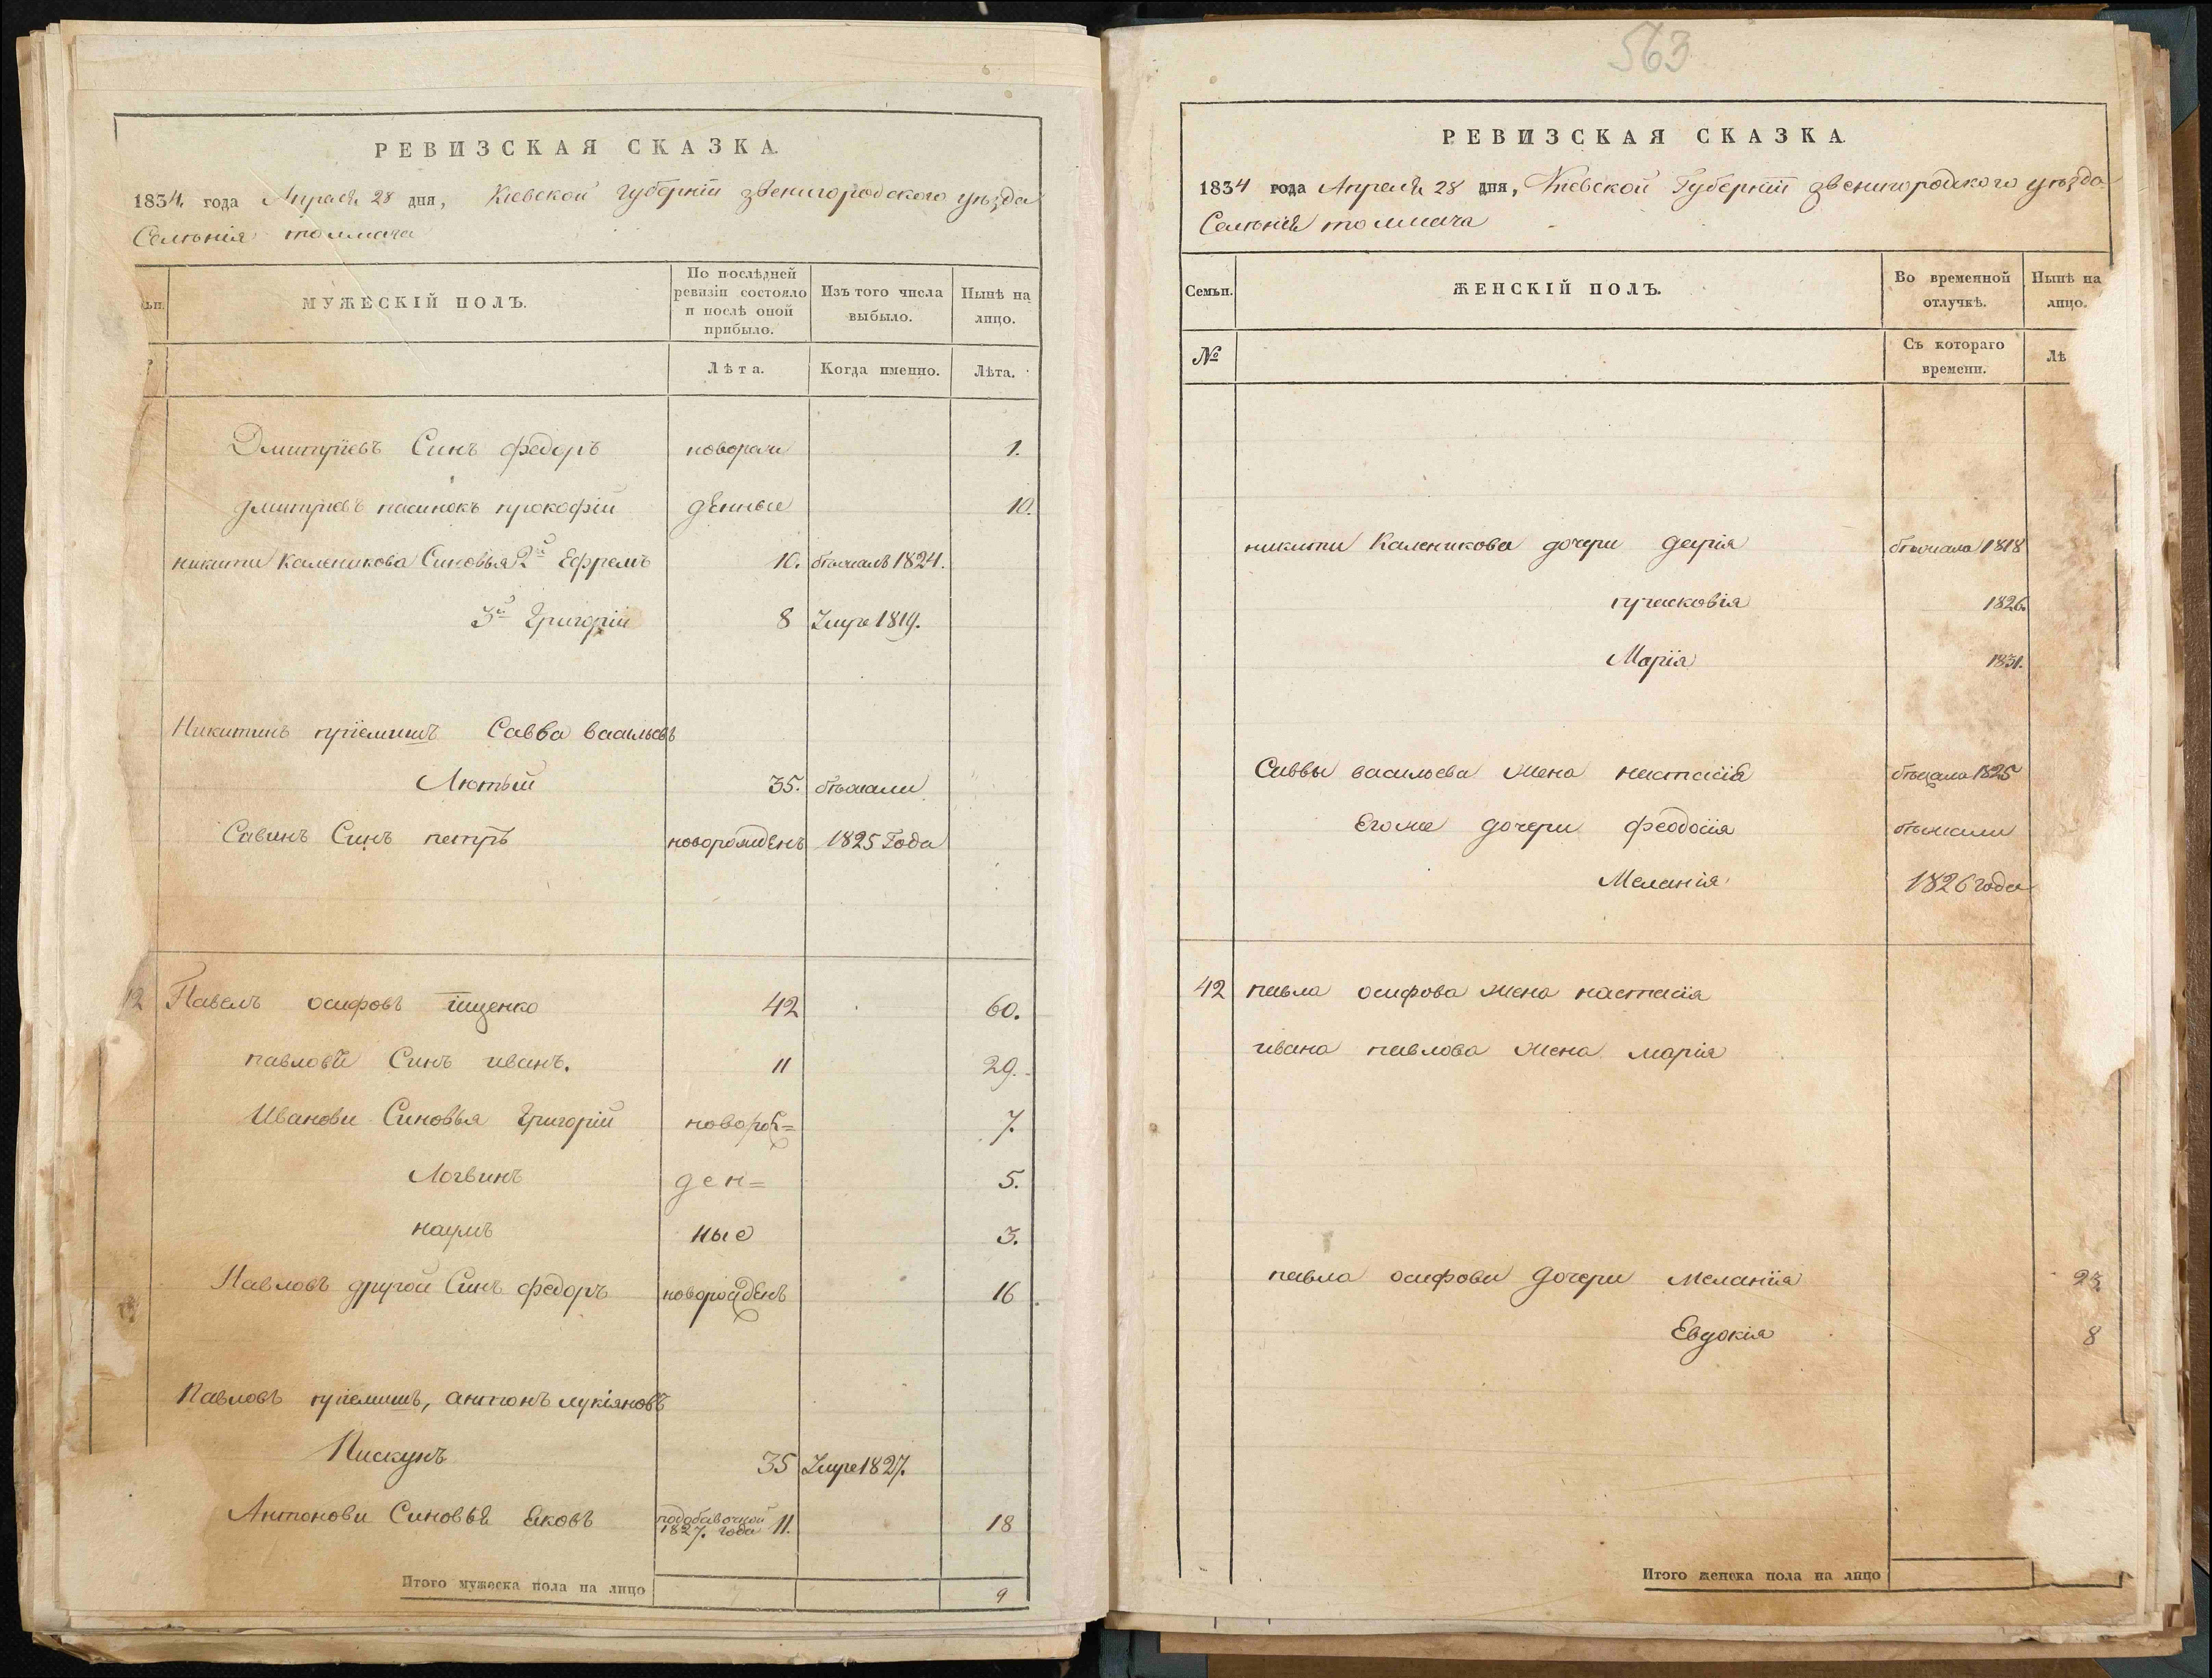 РЕВИЗСКАЯ СКАЗКА.
1834. года Апреля 28 дня, Киевской губерніи звенигородского уѣзда
Селѣнія толмача
МУЖЕСКІЙ ПОЛЪ.
По послѣдней ревизіи состояло и послѣ оной прибыло.
Изъ того числа выбыло.
Нынѣ на лицо.
Лѣта.
Когда именно.
Лѣта.
Дмитріевъ Синъ федоръ новорож 1.
дмитріевъ пасинокъ прокофій денные 10.
никити Каленикова Синовья 2й Ефремъ 10. бѣжалъ 1824.
3й Григорій 8 Умре 1819.
Никитинъ пріемишъ Савва васильевъ
Лютый 35. бѣжали
Савинъ Синъ петръ новорожденъ 1825 Года
12 Павелъ осифовъ іщенко 42 60.
павловй Синъ иванъ. 11 29.
Иванови Синовья Григорій новорож= 7.
Логвинъ ден= 5.
наумъ ные 3.
Павловъ другой Синъ федоръ новорожденъ 16
Павловъ пріемишъ, антонъ лукіяновъ
Пискунъ 35 Умре 1827.
Антонови Синовья Яковъ подобавочной 1827. года 11. 18
Итого мужеска пола на лицо 9
563
РЕВИЗСКАЯ СКАЗКА
1834 года Апреля 28 дня, Киевской Губерніи звенигородского уѣзда
Селѣнія толмача
Семьи.
ЖЕНСКІЙ ПОЛЪ.
Во временной отлучкѣ.
Нынѣ на лицо.
№
Съ котораго времени.
Лѣ
никити Каленикова дочери дарія бѣжала 1818
прасковія 1826.
Марія 1831.
Саввы васильева жена настасія бѣжала 1825
Егоже дочери феодосія бѣжали
Меланія 1826 года
42 павла осифова жена настасія
ивана павлова жена марія
павла осифови дочери меланія 23
Евдокія 8
Итого женска пола на лицо